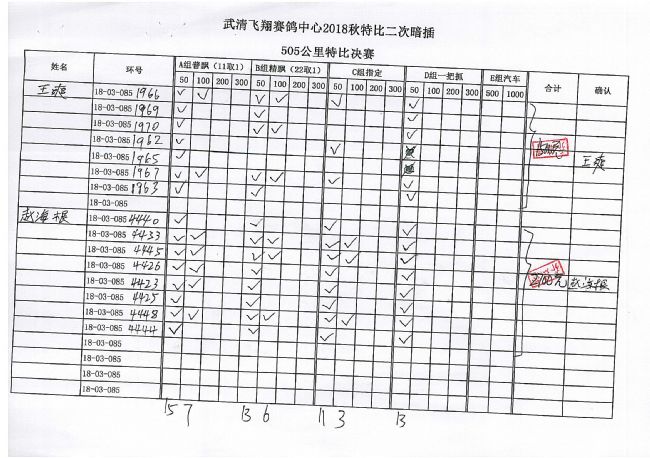 武清飞翔赛鸽中心2018秋特比二次暗插
505公里特比决赛
姓名 环号 A组普飘（11取1） B组精飘（22取1） C组指定 D组一把抓 E组汽车 合计 确认
50 100 200 300 50 100 200 300 50 100 200 300 50 100 200 300 500 1000
王爽 18-03-085 1966 ✓ ✓ ✓ ✓ ✓ ✓
18-03-085 1969 ✓ ✓ ✓
18-03-085 1970 ✓ ✓ ✓ ✓
18-03-085 1962 ✓ ✓ ✓
18-03-085 1965 ✓ 王爽
18-03-085 1967 ✓ ✓ ✓ ✓ ✓
18-03-085 1963 ✓ ✓ ✓
18-03-085
赵海根 18-03-085 4440 ✓ ✓ ✓ ✓
18-03-085 4433 ✓ ✓ ✓ ✓ ✓ ✓ ✓
18-03-085 4445 ✓ ✓ ✓ ✓ ✓ ✓ ✓
18-03-085 4426 ✓ ✓ ✓ ✓ ✓
18-03-085 4423 ✓ ✓ ✓ ✓ ✓ 赵海根
18-03-085 4425 ✓ ✓ ✓ ✓
18-03-085 4448 ✓ ✓ ✓ ✓ ✓ ✓ ✓
18-03-085 4444 ✓ ✓ ✓ ✓
18-03-085
18-03-085
18-03-085
15 7 13 6 11 3 13